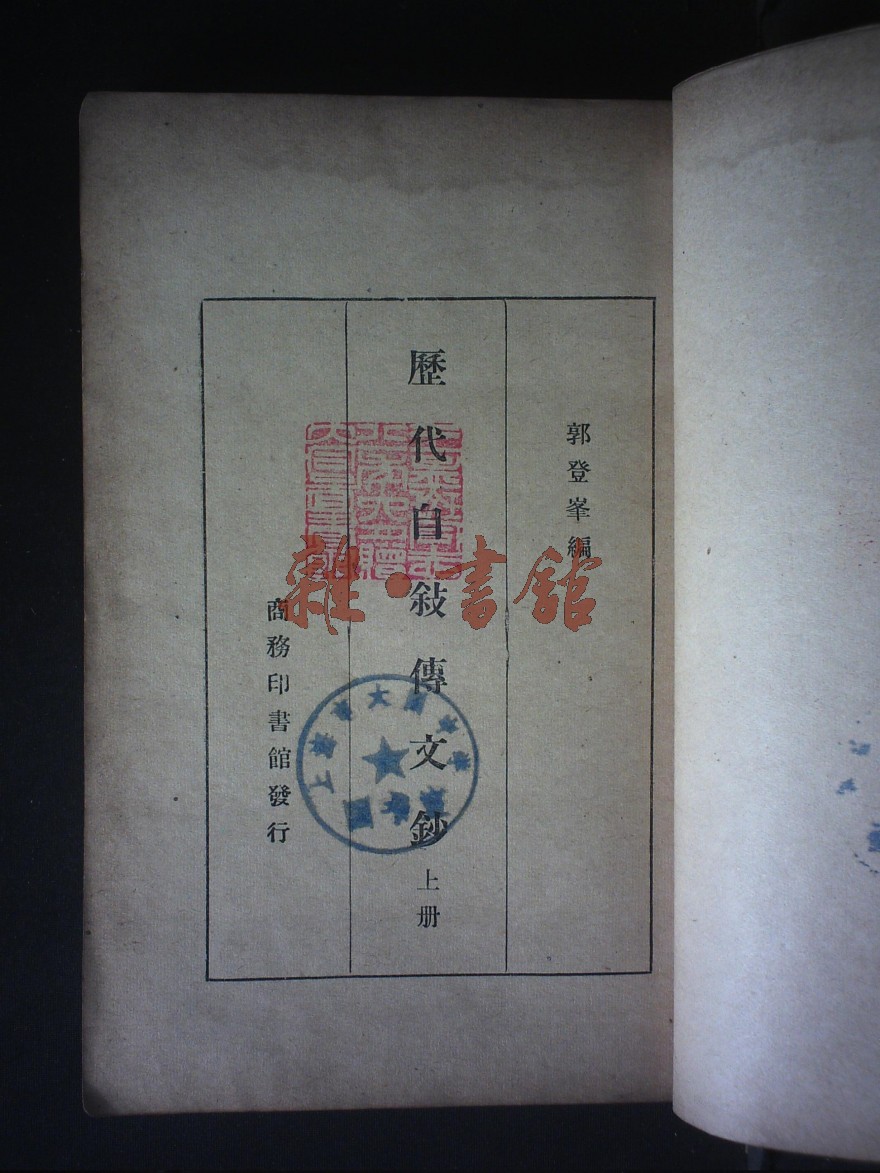 郭登峯編
歷代自敍傳文鈔
上册
商務印書館發行
雜·書館